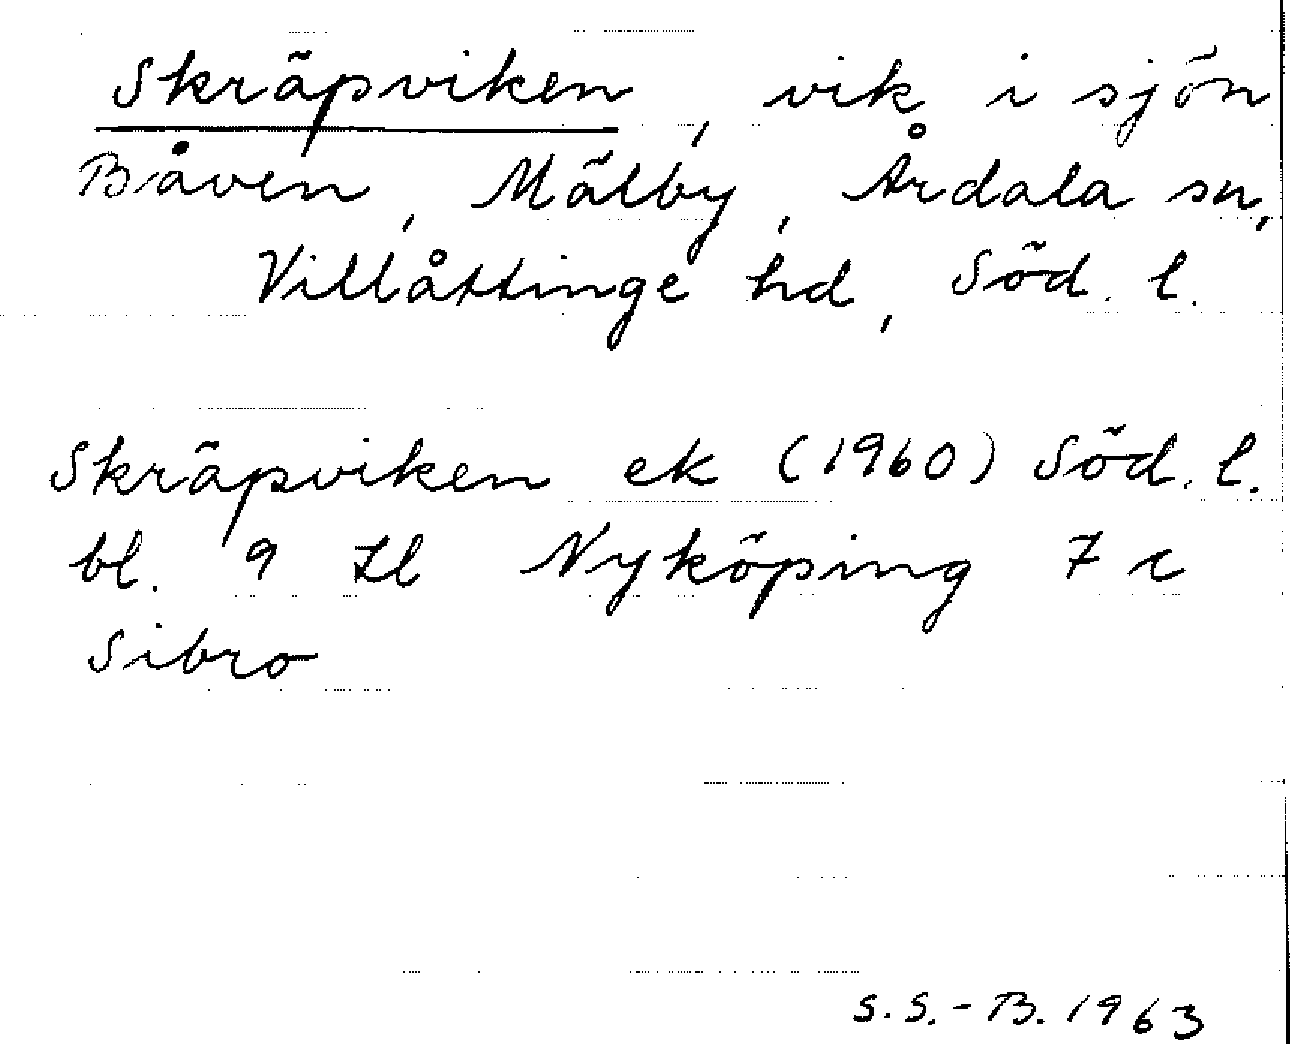 Skräpviken, vik i sjön
Båven, Mälby, Årdala sn,
Villåttinge hd, Söd. l.
Skräpviken ek (1960) Söd. l.
bl. 9 Il Nyköping 7 c
Sibro
S.S.-B. 1963